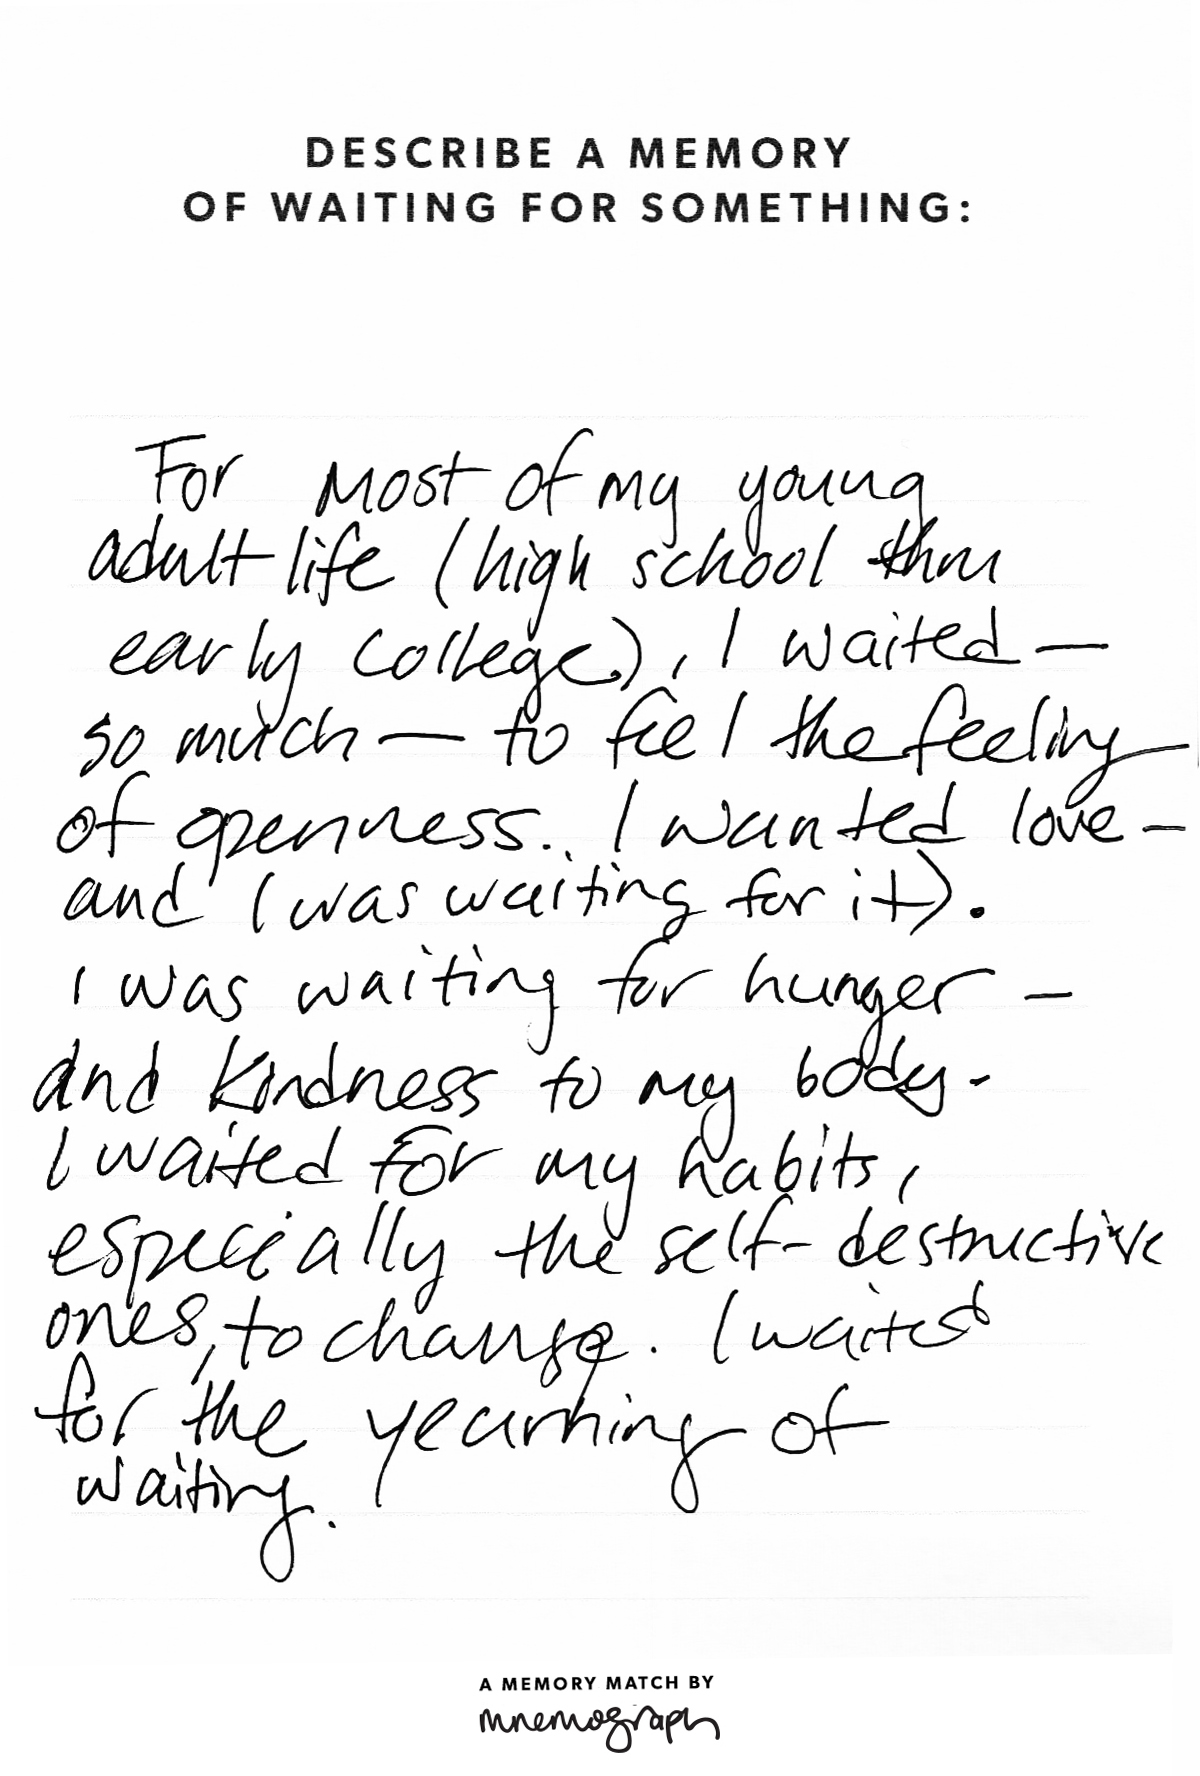 DESCRIBE A MEMORY
OF WAITING FOR SOMETHING:
For most of my young
adult life (high school thru
early college), I waited —
so much — to feel the feeling
of openness. I wanted love —
and I was waiting for it).
I was waiting for hunger —
and kindness to my body.
I waited for my habits,
especially the self-destructive
ones, to change. I waited
for the yearning of
waiting.
A MEMORY MATCH BY
mnemograph